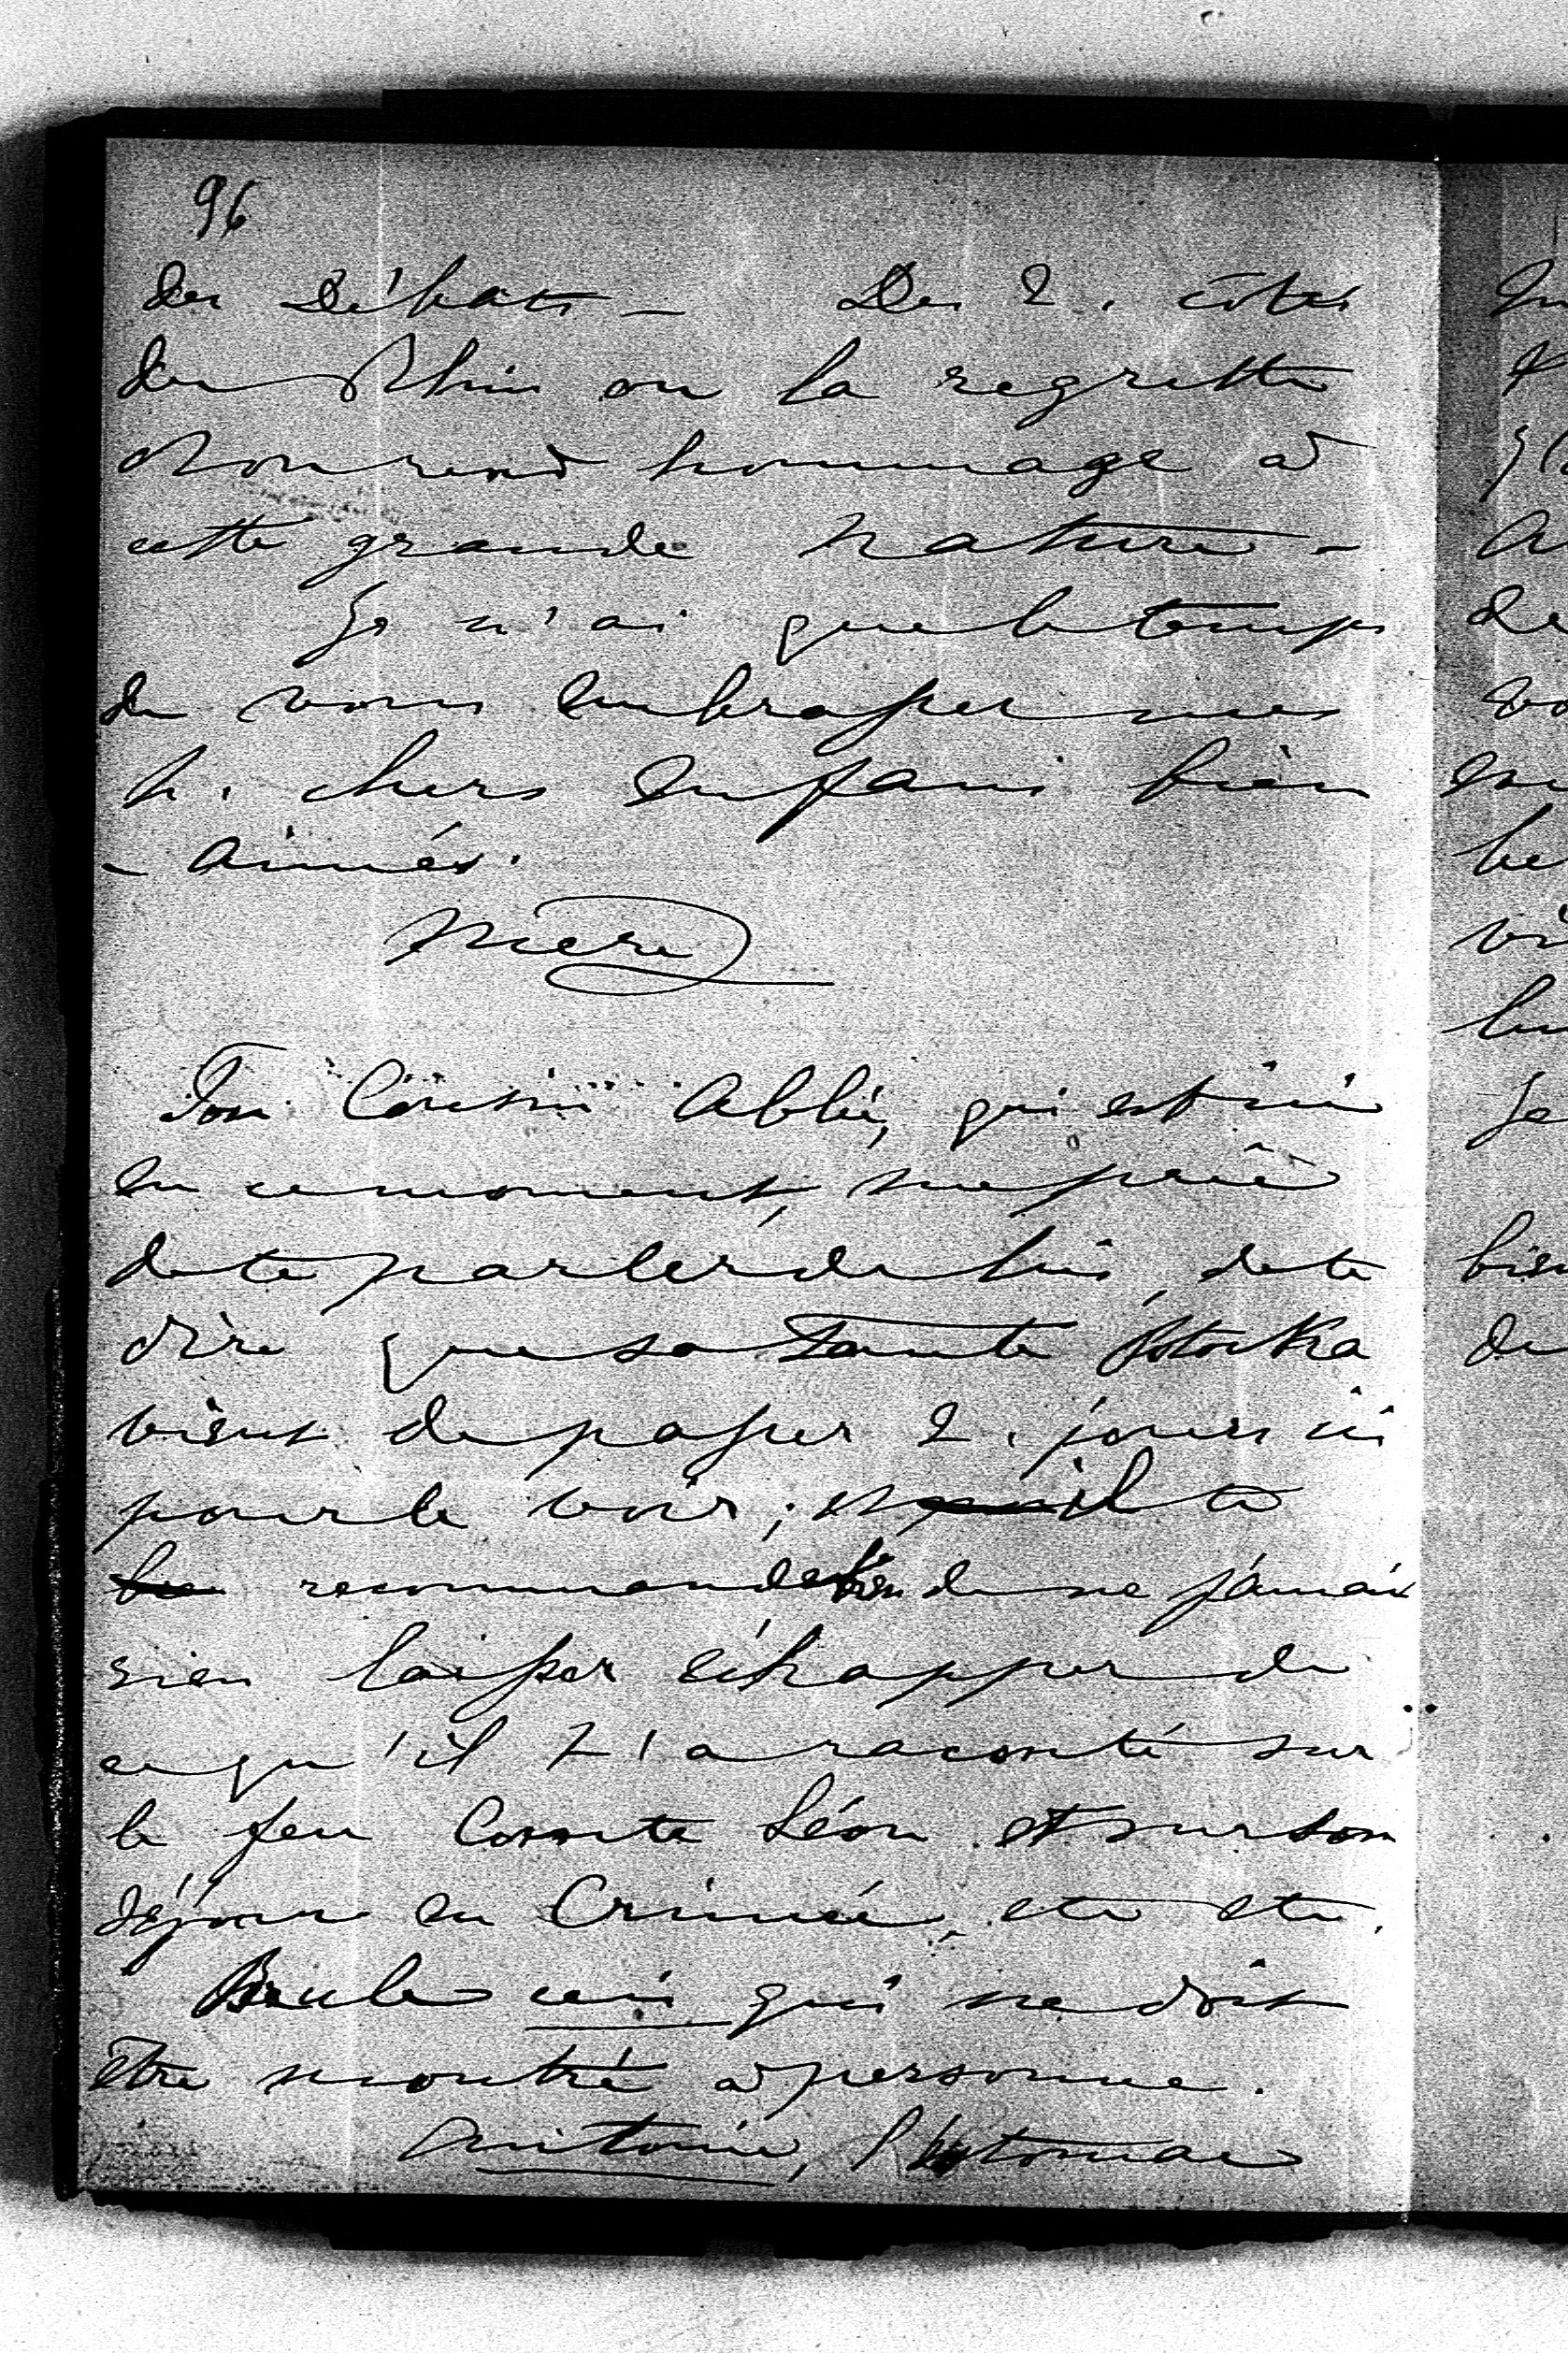 96
des Débats — Des 2. côtés
du Rhin on la regrette
& on rend hommage à
cette grande nature —
Je n'ai que le temps
de vous embrasser mes
tr. chers enfans bien
- aimés.
Mère
Ton Cousin Abbé, qui est ici
en ce moment, me prie
de te parler de lui, de te
dire que sa Tante Potocka
vient de passer 2. jours ici
pour le voir; et il te
recommande bien de ne jamais
rien laisser échapper de
ce qu'il t'a raconté sur
le feu Comte Léon et sur son
séjour en Crimée, etc etc.
Brule ceci qui ne doit
être montré à personne.
Antoine,